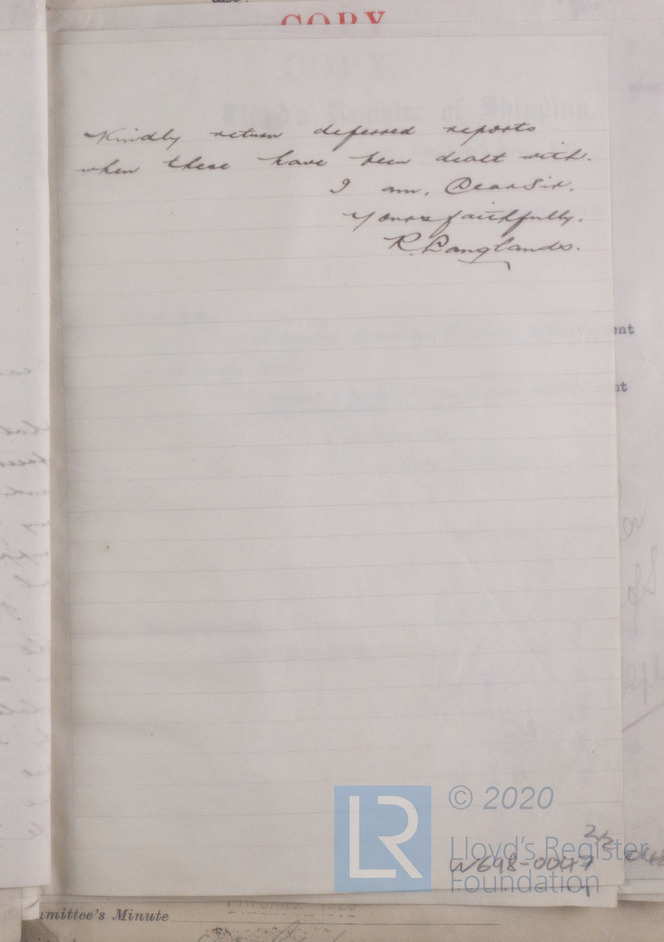 COPY
Kindly return deferred reports
when these have been dealt with.
I am, Dear Sir,
Yours faithfully,
R. Langlands.
LR
© 2020
Lloyd's Register
Foundation
W698-0047
2/2
mmittee's Minute